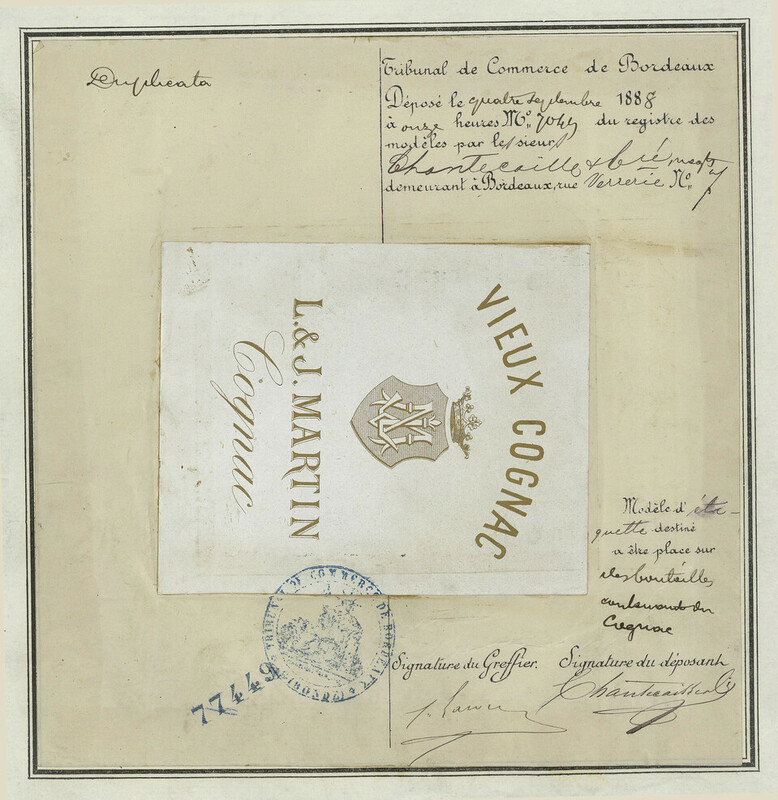 Duplicata
Tribunal de Commerce de Bordeaux
Déposé le quatre septembre 1888
à onze heures No. 7049 du registre des
modèles par le sieur
Chantecaille & Cie
demeurant à Bordeaux, rue Verrerie No. 7
VIEUX COGNAC
L. & J. MARTIN
Cognac
Modèle d'éti-
quette destiné
a être place sur
des bouteilles
contenant du
Cognac
TRIBUNAL DE COMMERCE DE BORDEAUX
(GIRONDE)
77449
Signature du Greffier. Signature du déposant
Chantecaille & Cie